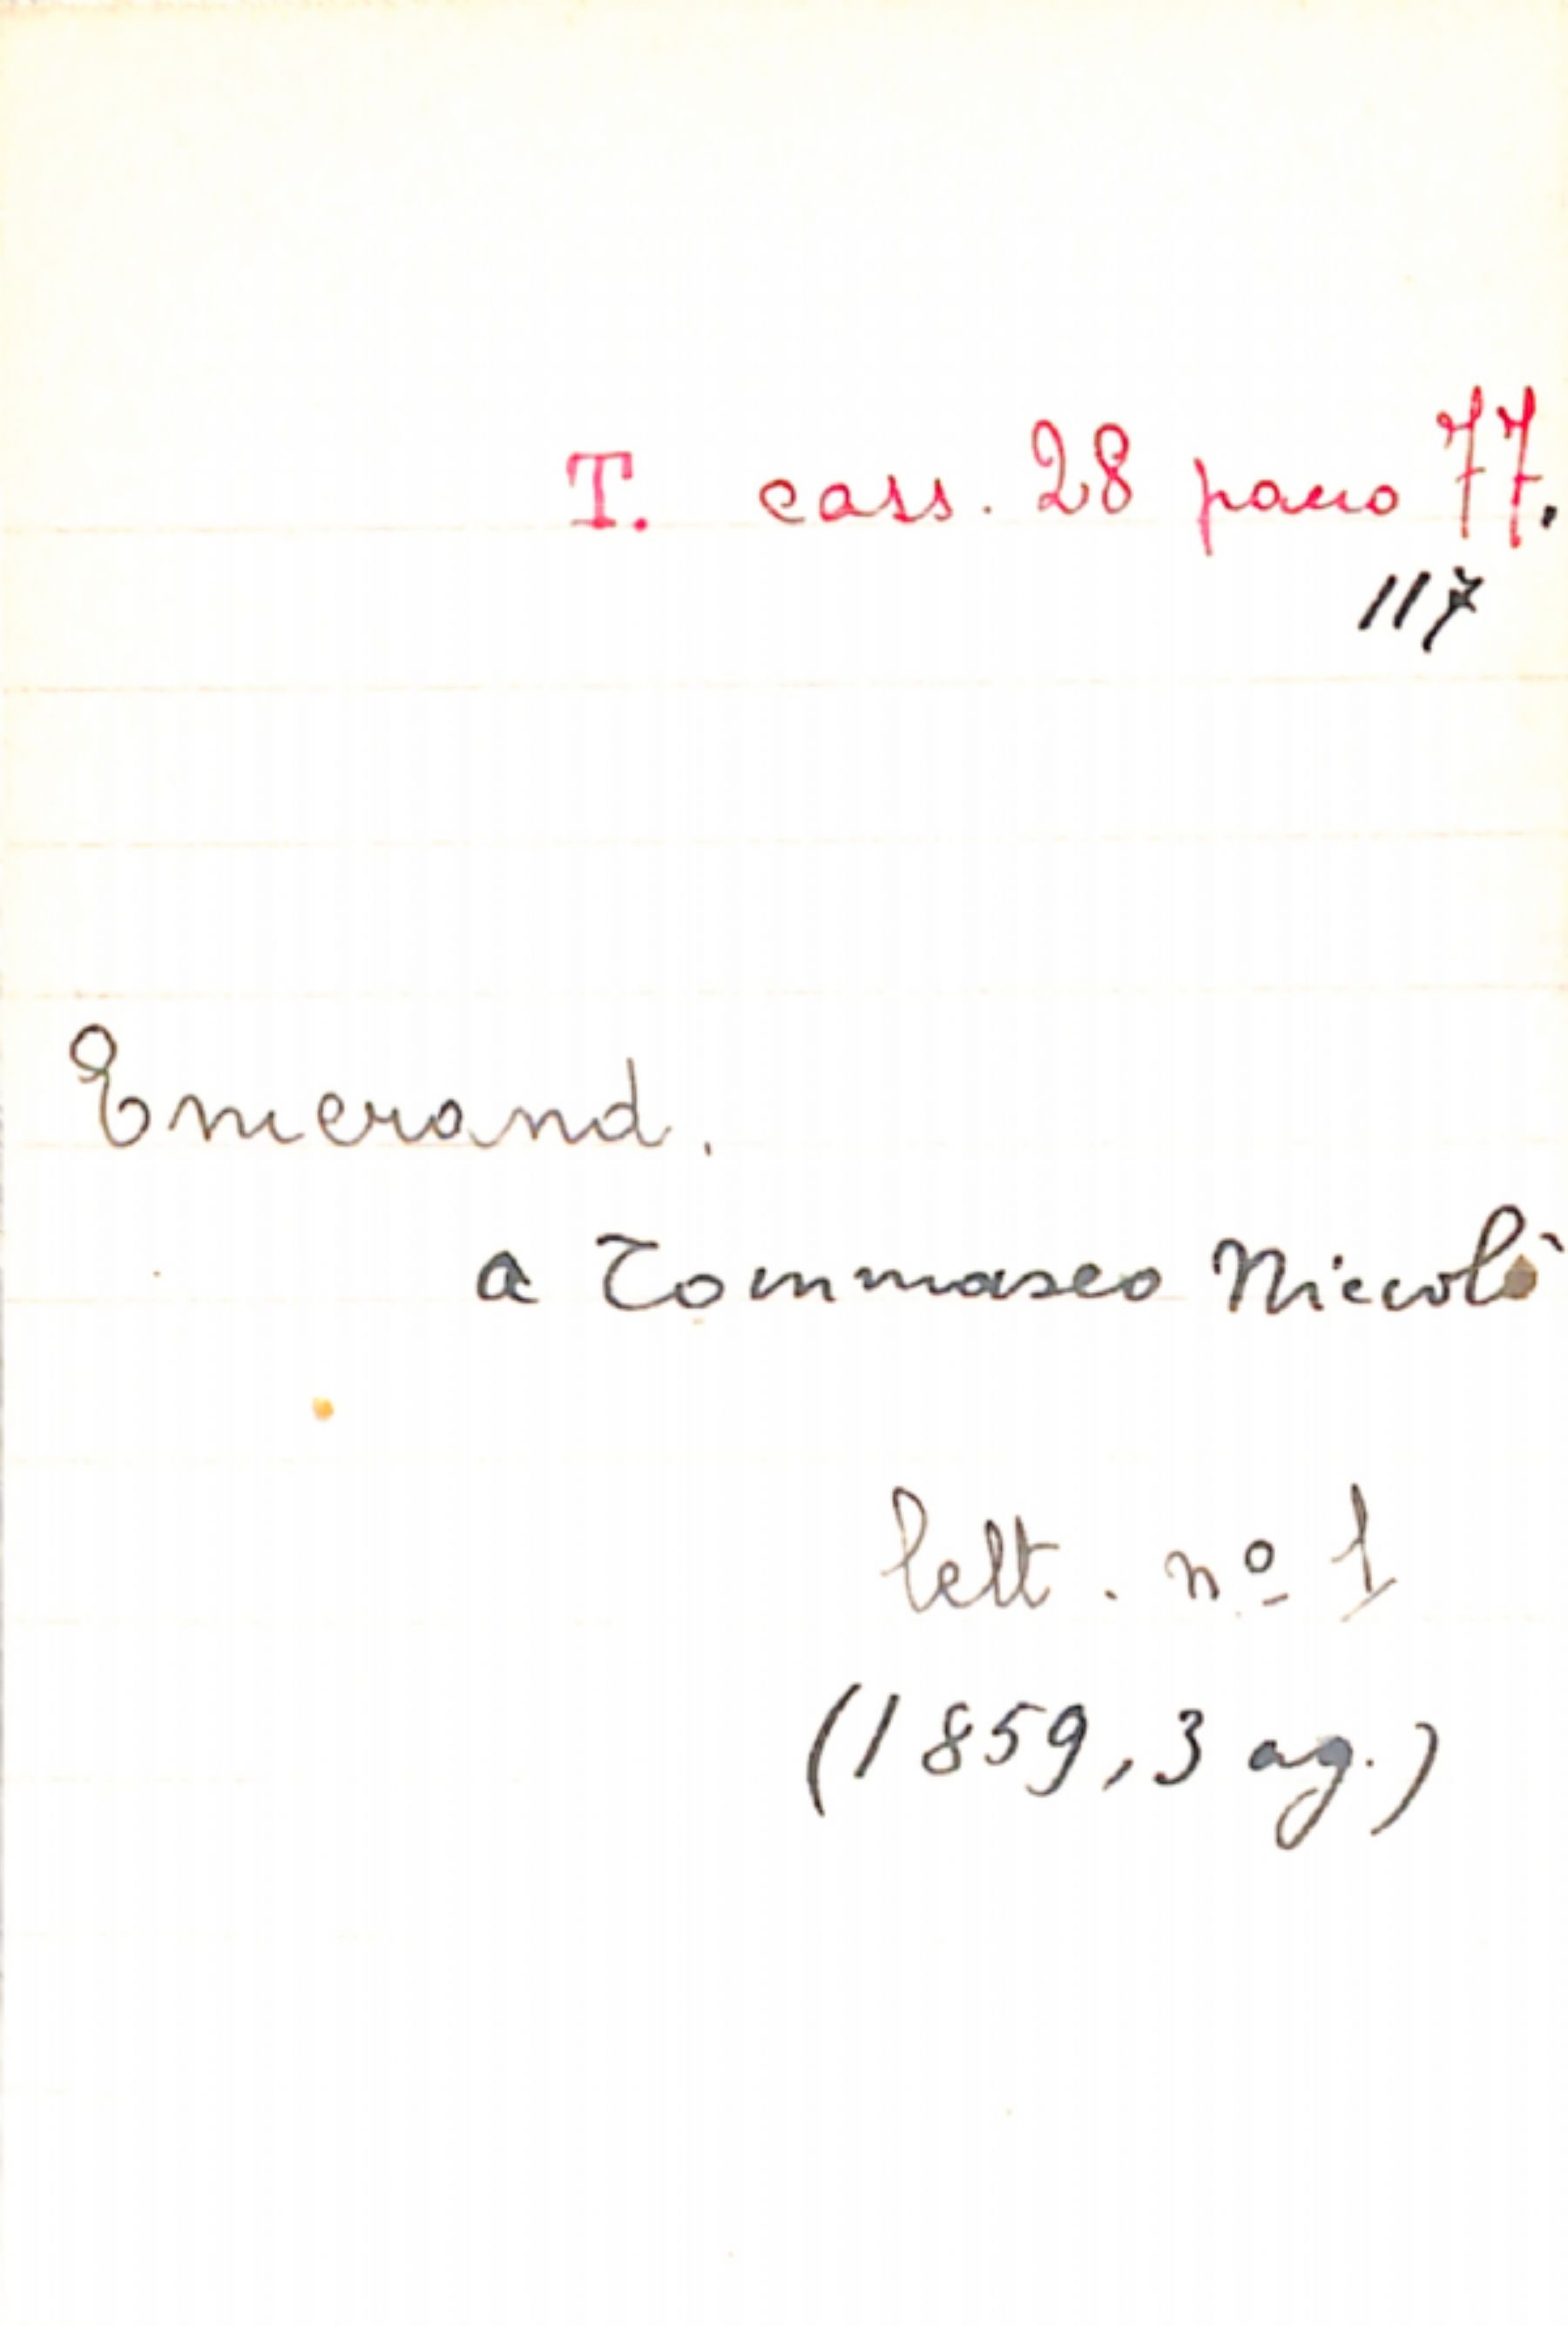 T. cass. 28 pacco 77.
117
Emerand.
a Tommaseo Niccolò
lett. nº 1
(1859, 3 ag.)